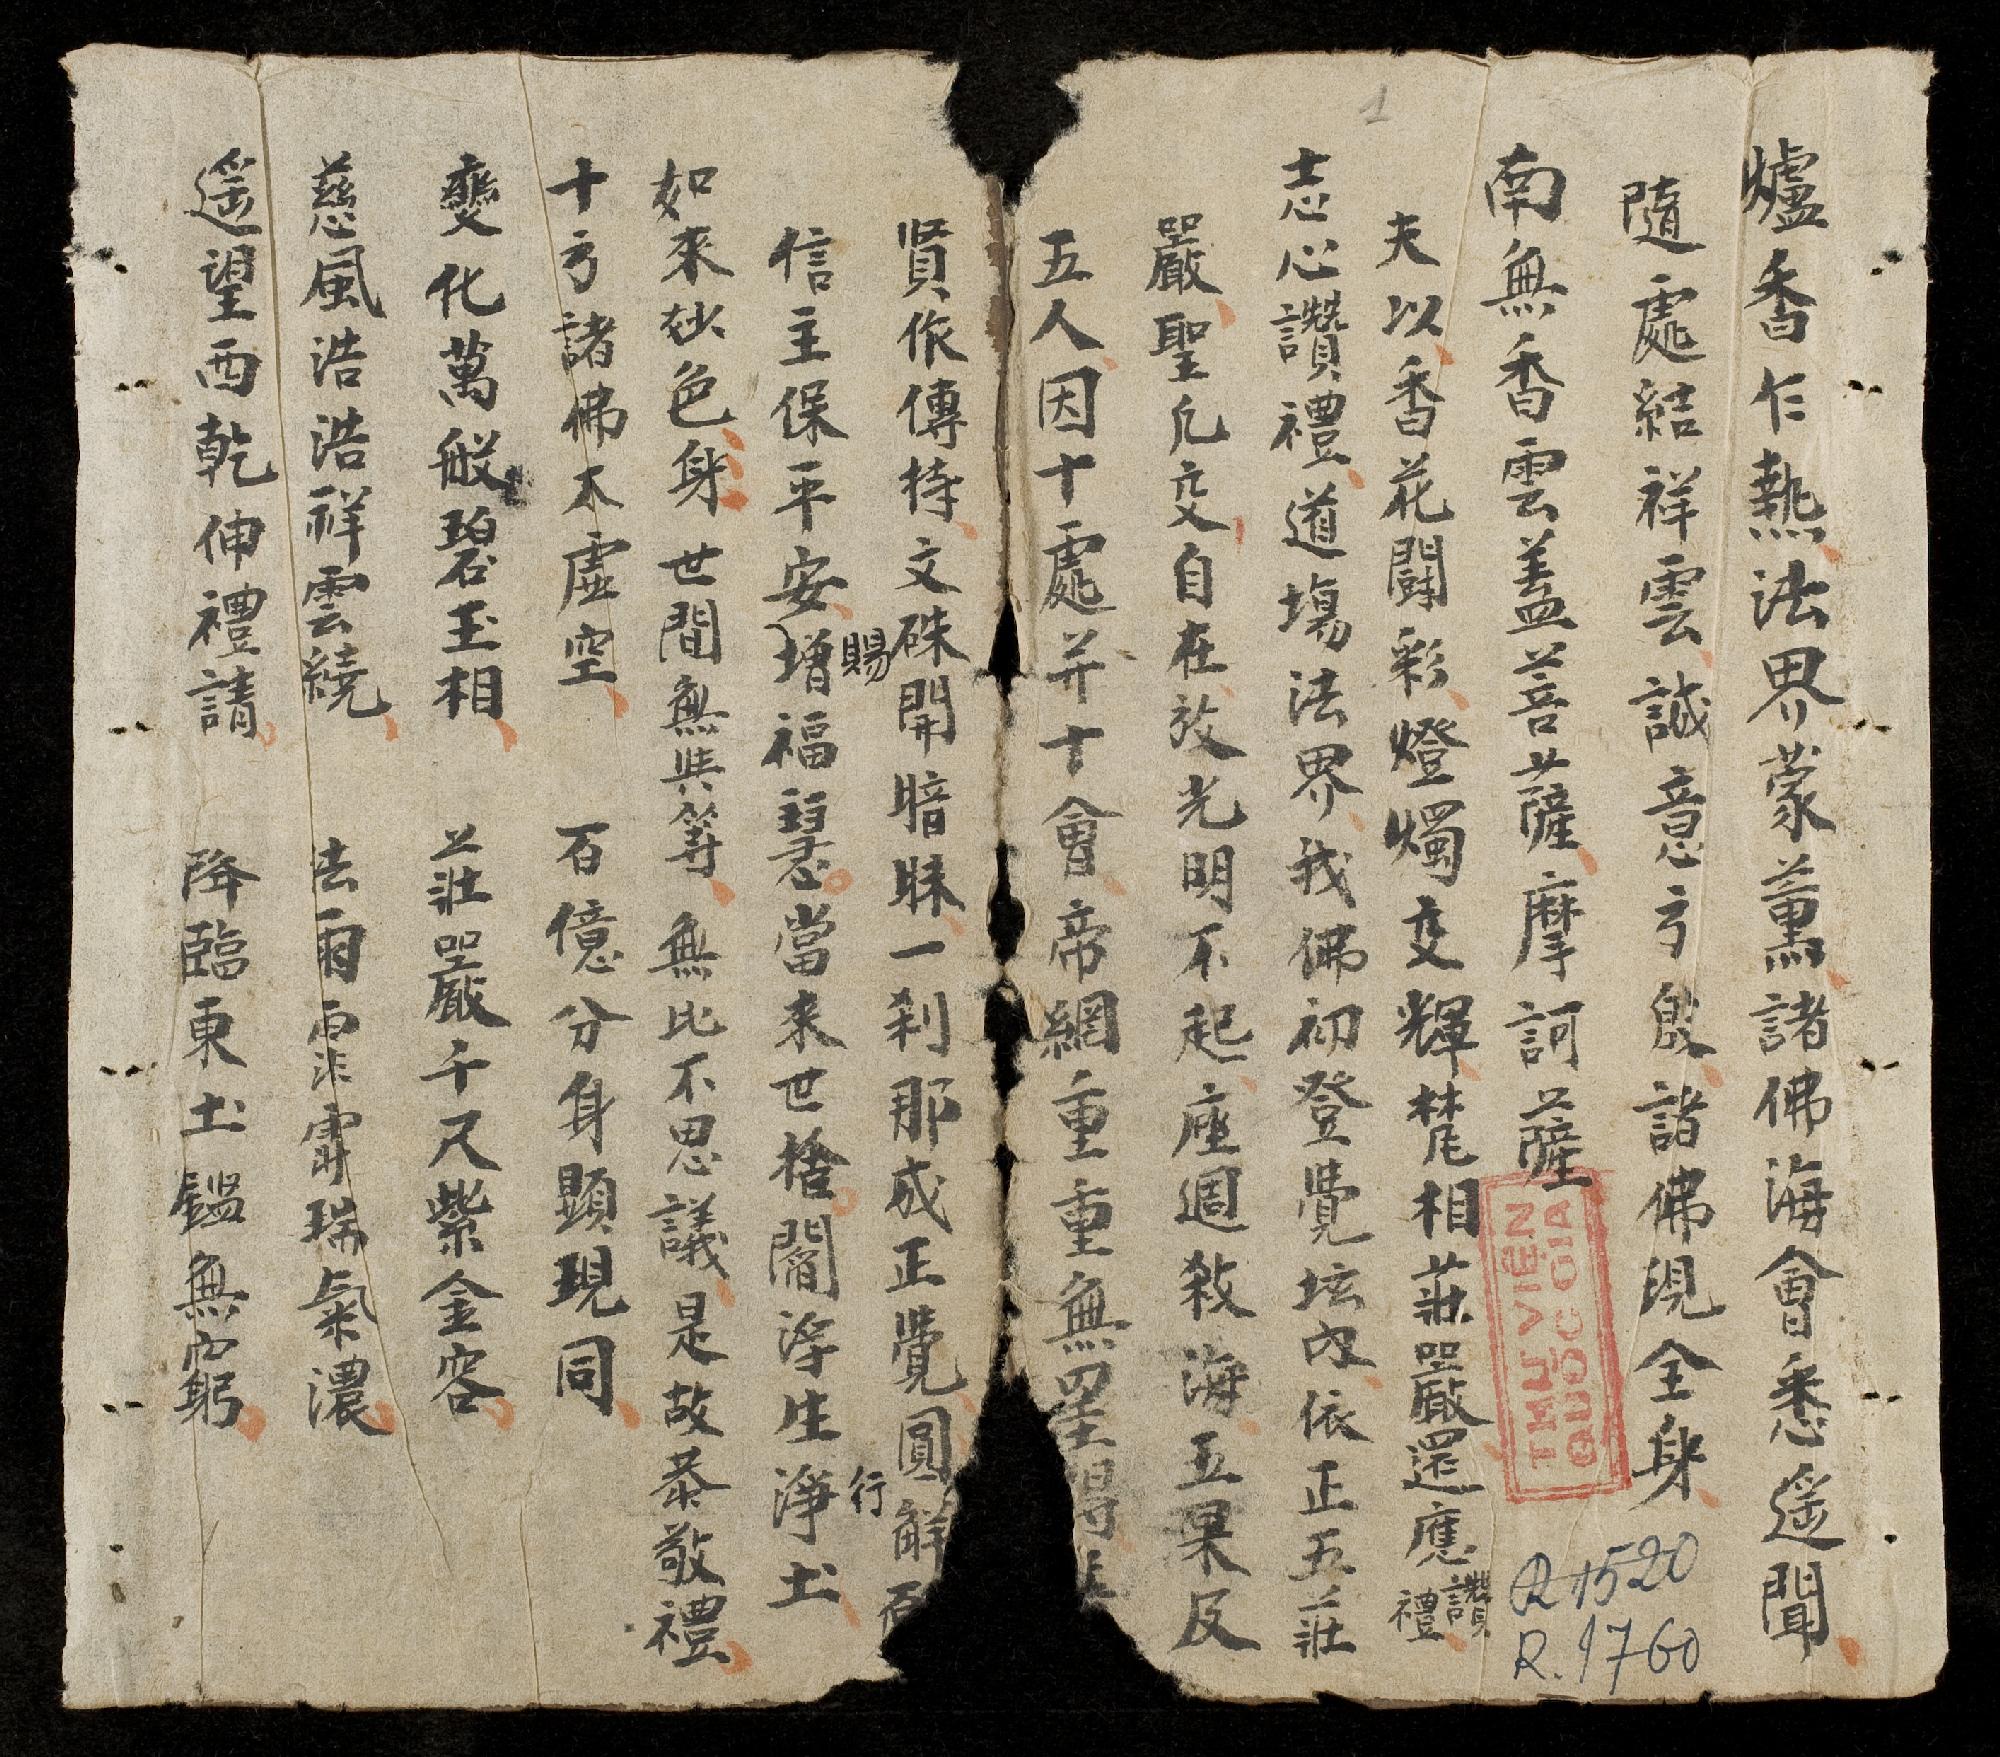 1
爐香乍熱法界蒙薰諸佛海會悉遥聞
隨處結祥雲誠意方殷諸佛現全身
南無香雲盖菩薩摩訶薩
夫以香花鬪彩燈燭交輝梵相莊嚴還應讚禮
志心讚禮道塲法界我佛初登覺坛内依正五莊
嚴聖凡交自在放光明不起座週殺海五果及
五人因十處并十會帝網重重無星
賢依傳持文硃開暗昧一刹那成正覺圓解
信主保平安增福慧當来世捨閻浮生淨土
賜
行
如來玅色身世間無與等無比不思議是故恭敬禮
十方諸佛不虛空 百億分身顕現同
變化萬般碧玉相 莊嚴千尺紫金容
慈風浩浩祥雲繞 法雨霏霏瑞氣濃
遥望西乾伸禮請 降臨東土鑑無窮
THƯ VIỆN
QUỐC GIA
R 1520
R. 1760